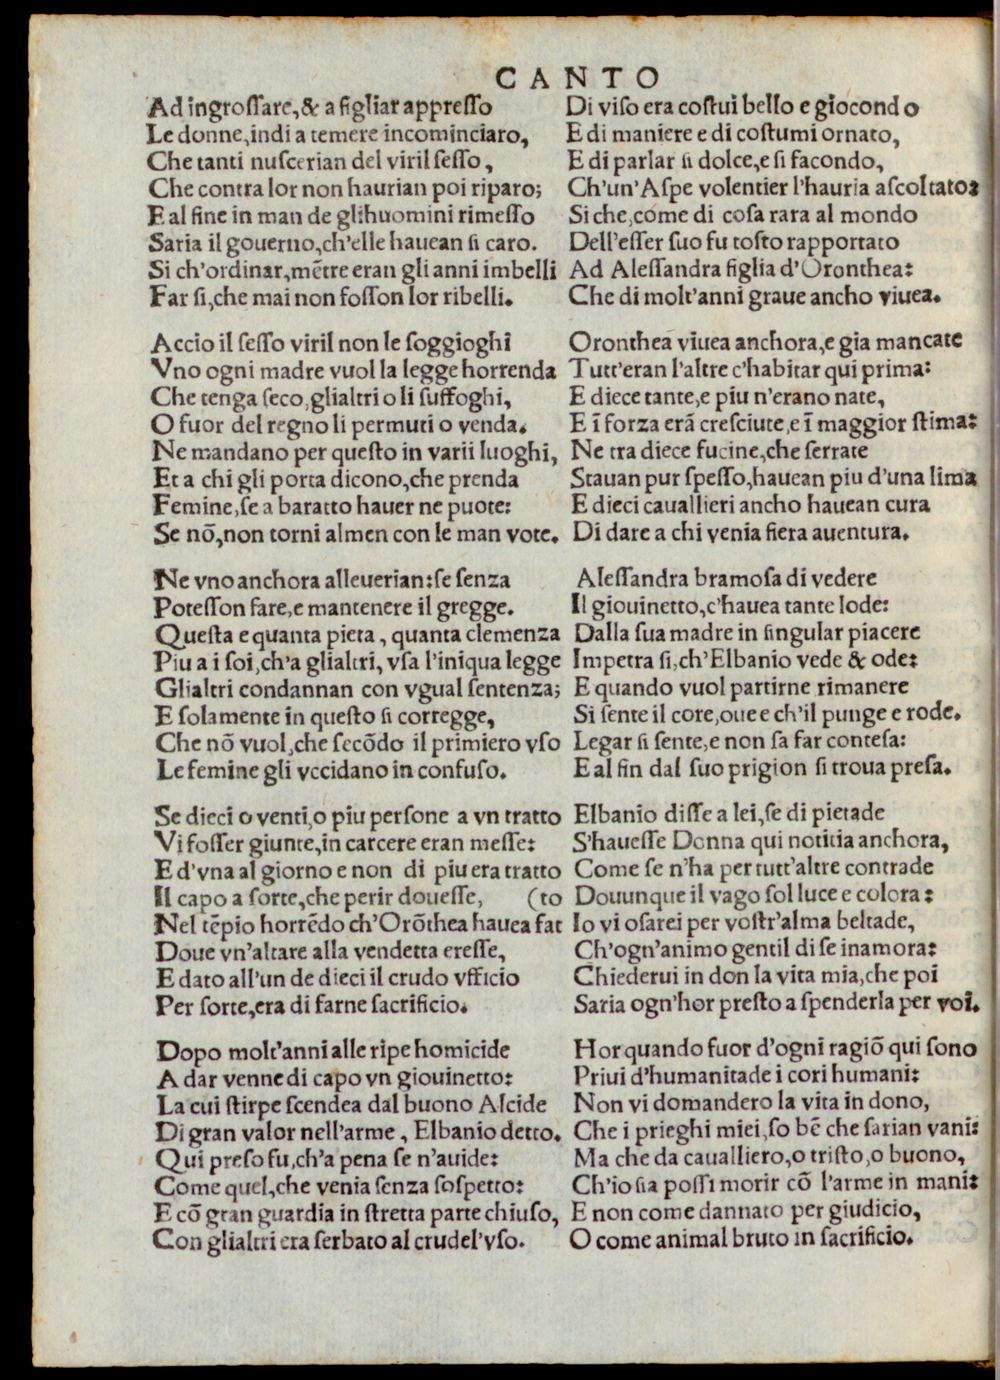 CANTO
Ad ingroſſare,& a figliar appreſſo
Le donne,indi a temere incominciaro,
Che tanti nuſcerian del viril ſeſſo,
Che contra lor non haurian poi riparo;
E al fine in man de glihuomini rimeſſo
Saria il gouerno,ch'elle hauean ſi caro.
Si ch'ordinar,mẽtre eran gli anni imbelli
Far ſi,che mai non foſſon lor ribelli.
Accio il ſeſſo viril non le ſoggioghi
Vno ogni madre vuol la legge horrenda
Che tenga ſeco,glialtri o li ſuffoghi,
O fuor del regno li permuti o venda.
Ne mandano per queſto in varii luoghi,
Et a chi gli porta dicono,che prenda
Femine,ſe a baratto hauer ne puote:
Se nõ,non torni almen con le man vote.
Ne vno anchora alleuerian:ſe ſenza
Poteſſon fare,e mantenere il gregge.
Queſta e quanta pieta, quanta clemenza
Piu a i ſoi,ch'a glialtri, vſa l'iniqua legge
Glialtri condannan con vgual ſentenza;
E ſolamente in queſto ſi corregge,
Che nõ vuol,che ſecõdo il primiero vſo
Le femine gli vccidano in confuſo.
Se dieci o venti,o piu perſone a vn tratto
Vi foſſer giunte,in carcere eran meſſe:
E d'vna al giorno e non di piu era tratto
Il capo a ſorte,che perir doueſſe, (to
Nel tẽpio horrẽdo ch'Orõthea hauea fat
Doue vn'altare alla vendetta ereſſe,
E dato all'un de dieci il crudo vfficio
Per ſorte,era di farne ſacrificio.
Dopo molt'anni alle ripe homicide
A dar venne di capo vn giouinetto:
La cui ſtirpe ſcendea dal buono Alcide
Di gran valor nell'arme, Elbanio detto.
Qui preſo fu,ch'a pena ſe n'auide:
Come quel,che venia ſenza ſoſpetto:
E cõ gran guardia in ſtretta parte chiuſo,
Con glialtri era ſerbato al crudel'vſo.
Di viſo era coſtui bello e giocondo
E di maniere e di coſtumi ornato,
E di parlar ſi dolce,e ſi facondo,
Ch'un'Aſpe volentier l'hauria aſcoltato:
Si che,come di coſa rara al mondo
Dell'eſſer ſuo fu toſto rapportato
Ad Aleſſandra figlia d'Oronthea:
Che di molt'anni graue ancho viuea.
Oronthea viuea anchora,e gia mancate
Tutt'eran l'altre c'habitar qui prima:
E diece tante,e piu n'erano nate,
E ĩ forza erã creſciute,e ĩ maggior ſtima:
Ne tra diece fucine,che ſerrate
Stauan pur ſpeſſo,hauean piu d'una lima
E dieci cauallieri ancho hauean cura
Di dare a chi venia fiera auentura.
Aleſſandra bramoſa di vedere
Il giouinetto,c'hauea tante lode:
Dalla ſua madre in ſingular piacere
Impetra ſi,ch'Elbanio vede & ode:
E quando vuol partirne rimanere
Si ſente il core,oue e ch'il punge e rode.
Legar ſi ſente,e non ſa far conteſa:
E al fin dal ſuo prigion ſi troua preſa.
Elbanio diſſe a lei,ſe di pietade
S'haueſſe Donna qui notitia anchora,
Come ſe n'ha per tutt'altre contrade
Douunque il vago ſol luce e colora:
Io vi oſarei per voſtr'alma beltade,
Ch'ogn'animo gentil di ſe inamora:
Chiederui in don la vita mia,che poi
Saria ogn'hor preſto a ſpenderla per voi.
Hor quando fuor d'ogni ragiõ qui ſono
Priui d'humanitade i cori humani:
Non vi domandero la vita in dono,
Che i prieghi miei,ſo bẽ che ſarian vani:
Ma che da caualliero,o triſto,o buono,
Ch'io ſia poſſi morir cõ l'arme in mani:
E non come dannato per giudicio,
O come animal bruto in ſacrificio.